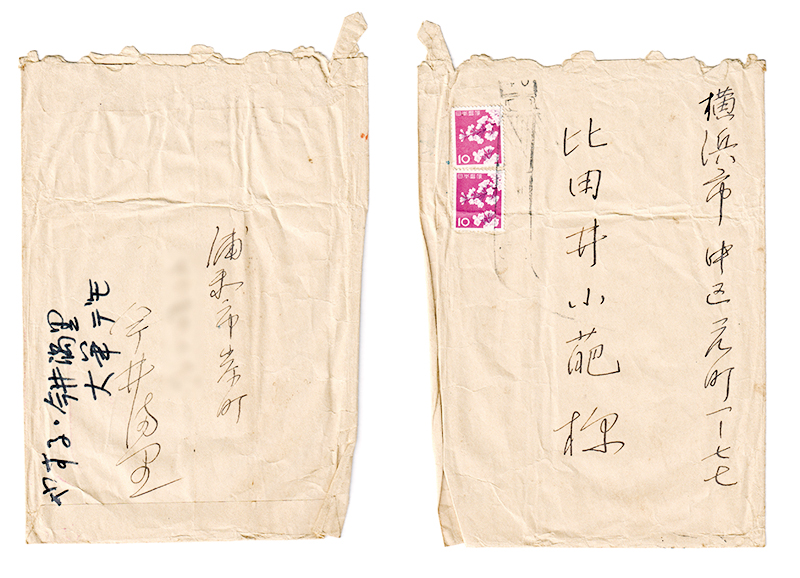 浦和市岸町
今井満里
大筆デモ
今井満里
横浜市中区元町一ー七七
比田井小葩様
日本郵便
10
日本郵便
10